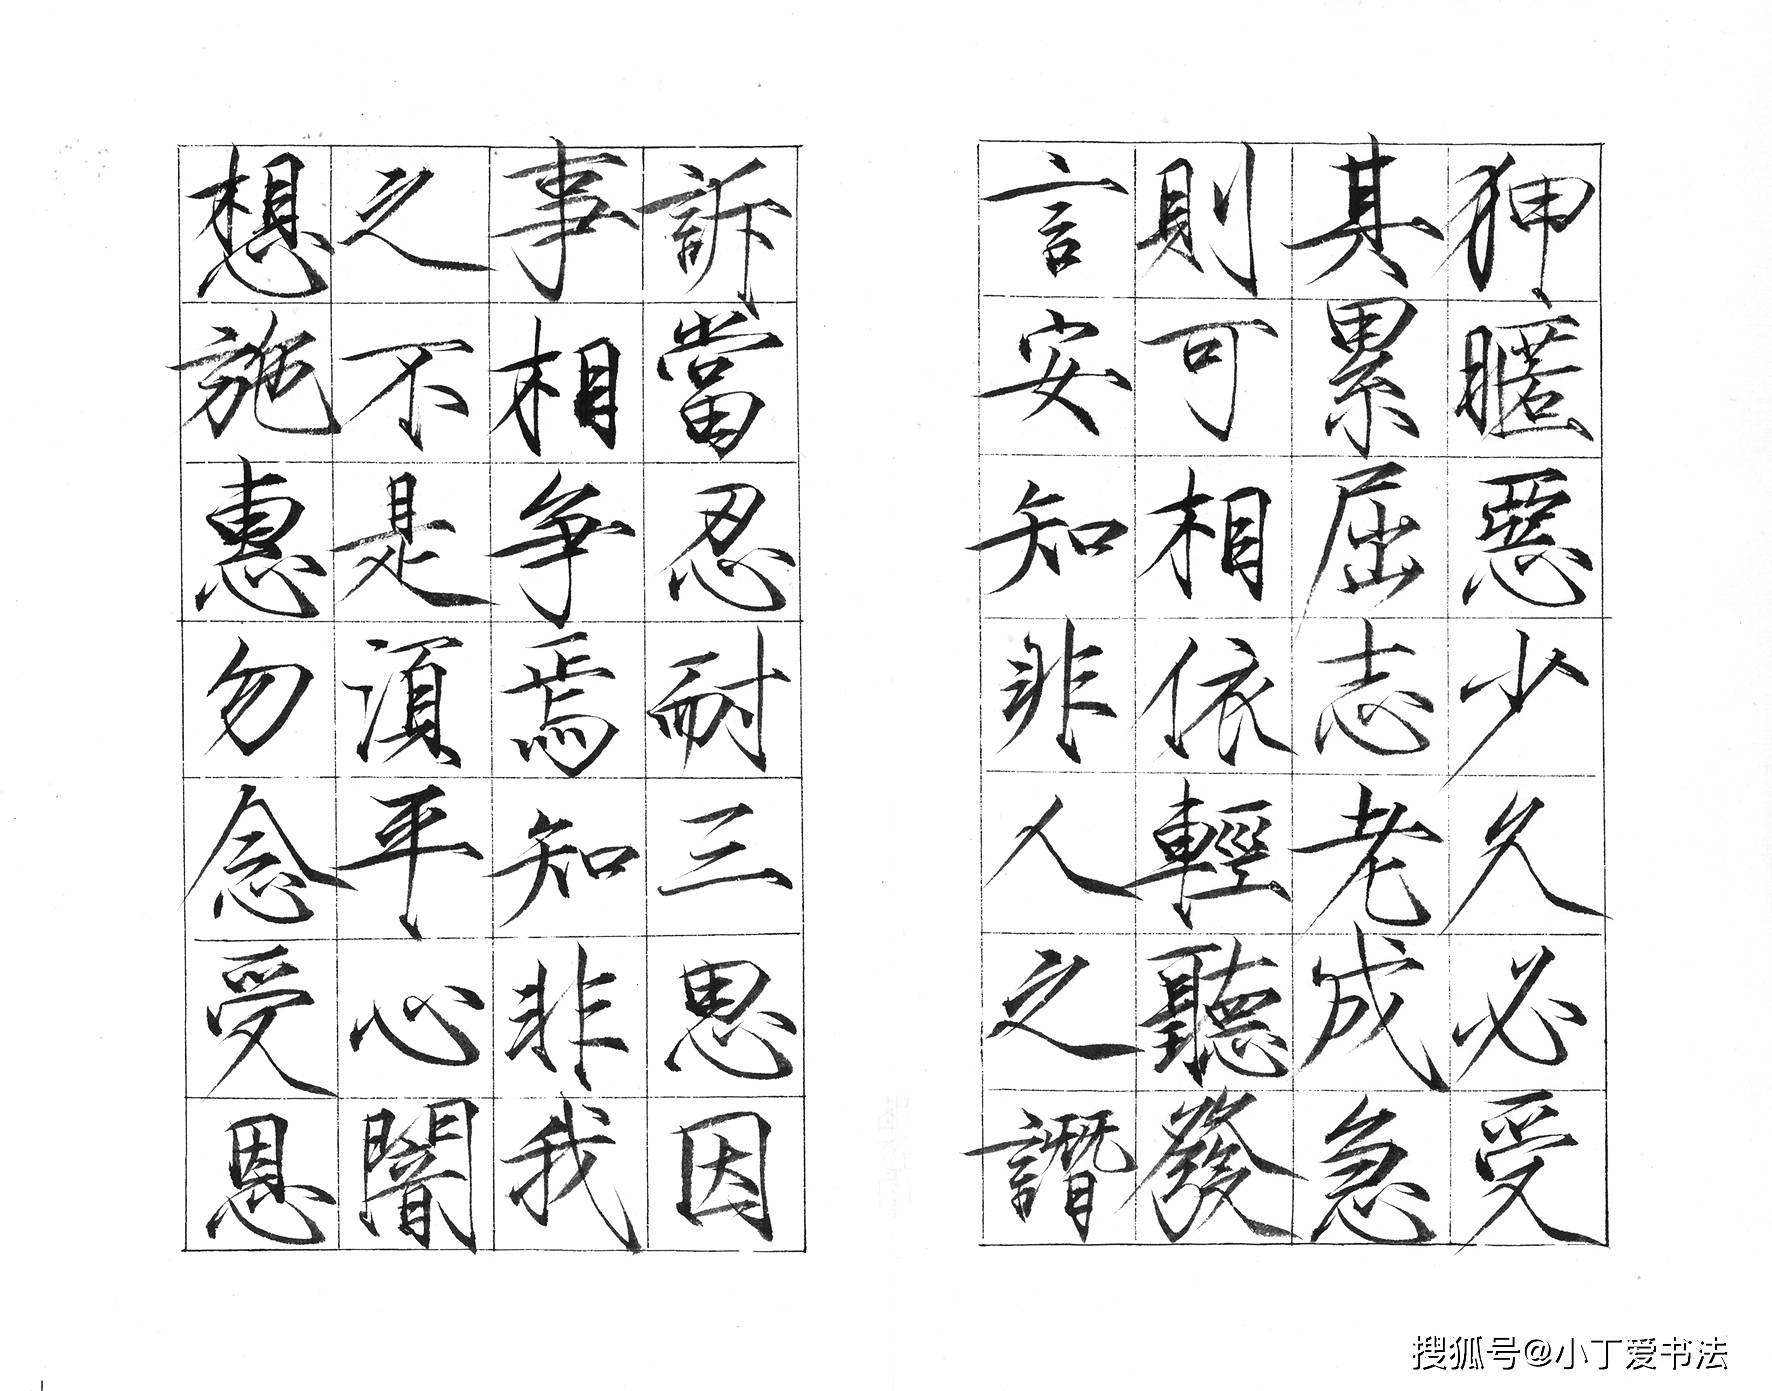 狎暱惡少久必受
其累屈志老成急
則可相依輕聽發
言安知非人之譖
訴當忍耐三思因
事相爭焉知非我
之不是須平心闇
想施惠勿念受恩
搜狐号@小丁爱书法